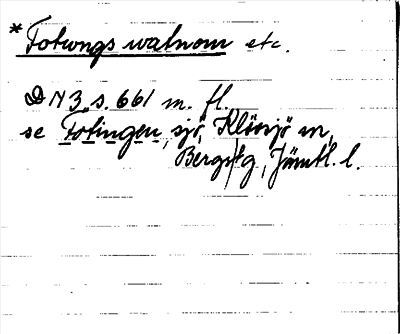 * Fotungs watnom etc.
DN 3 s. 661 m. fl.
se Fotingen, sjö, Klövsjö sn,
Bergs tg, Jämtl. l.